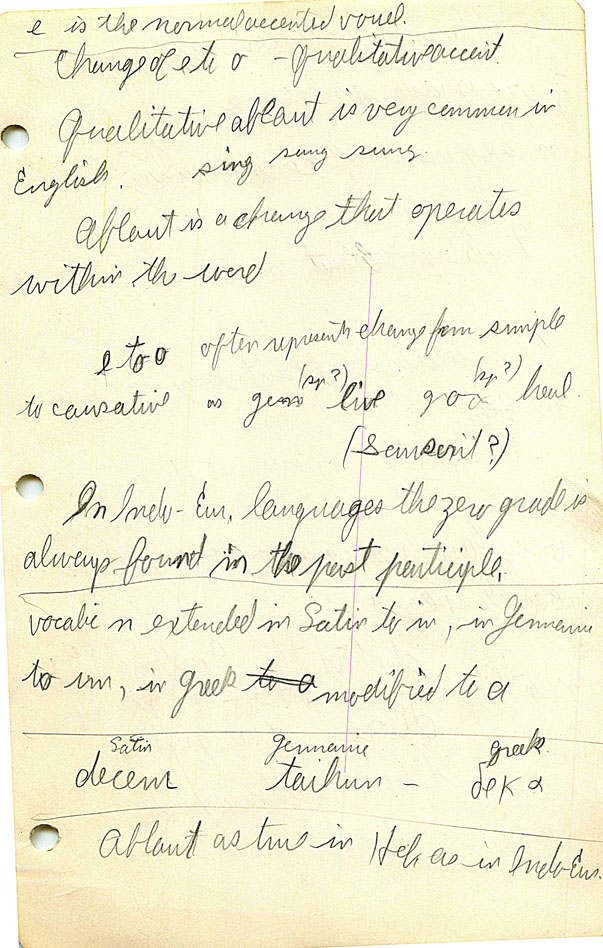 e is the normal accented vowel.
Change of e to o - Qualitative accent.
Qualitative ablaut is very common in
English. sing sang sung.
Ablaut is a change that operates
within the word
e to o often represents change from simple
to causative as (sp?) live (sp?) heal.
(Sanscrit?)
In Indo-Eur. languages the zero grade is
always found in the past participle.
vocalic n extended in Latin to in, in Germanic
to un, in Greek to a modified to a
Latin Germanic Greek
decem taihun - δεκα
Ablaut as true in Heb as in Indo-Eur.